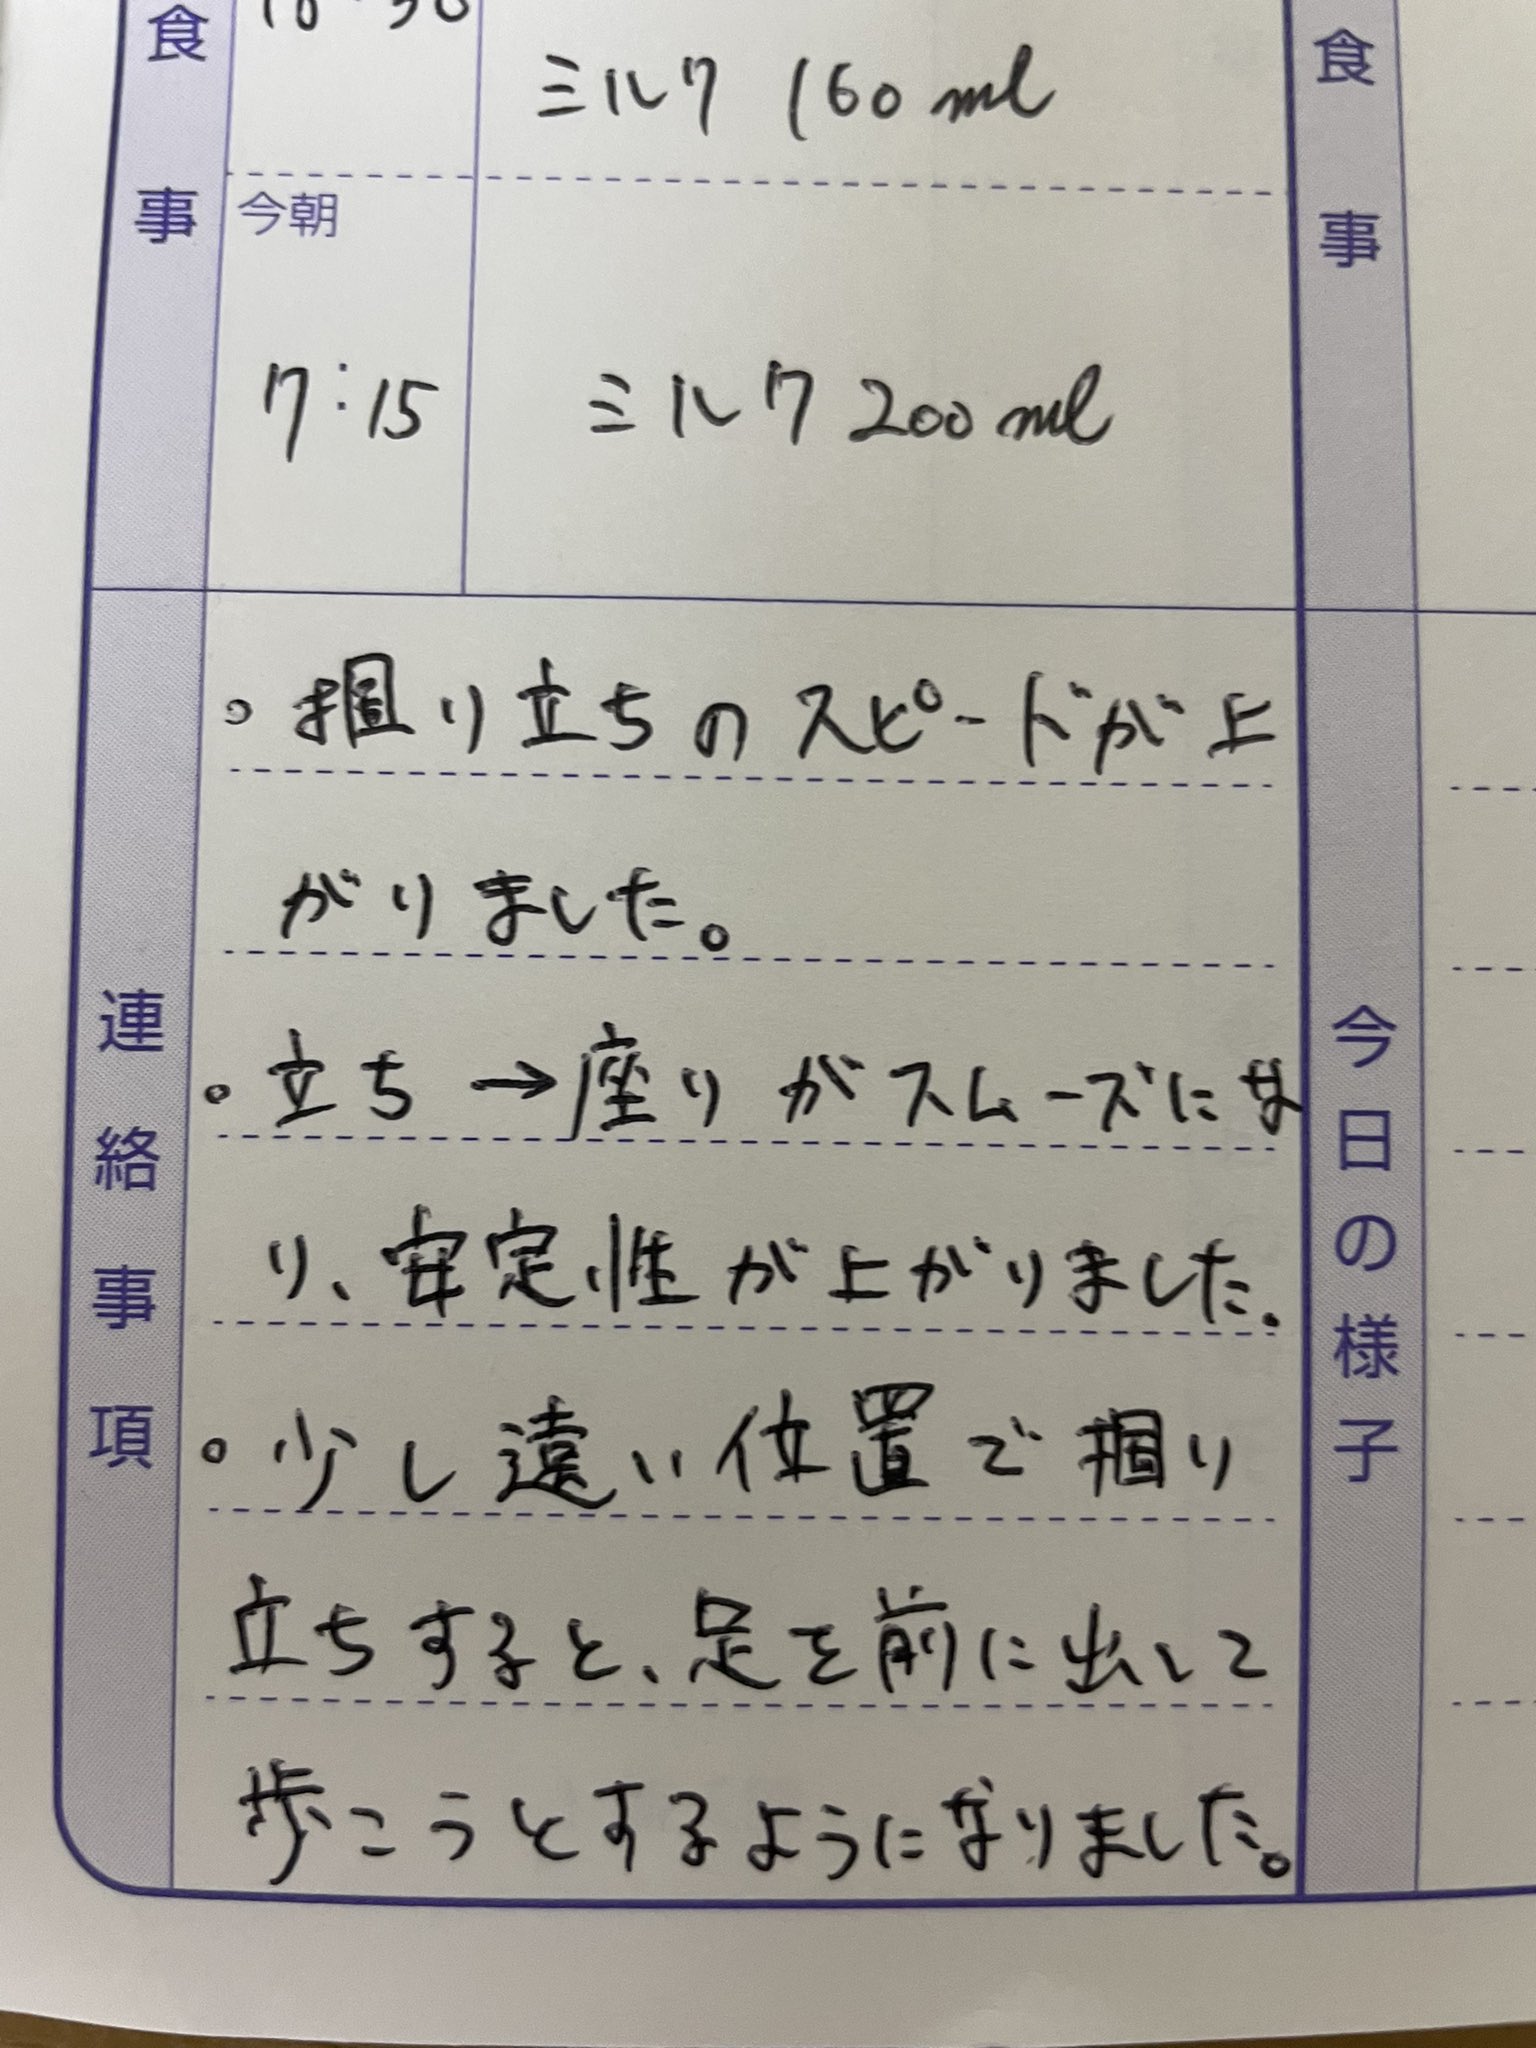 食事
ミルク 160ml
今朝
7:15 ミルク 200ml
連絡事項
。掴り立ちのスピードが上
がりました。
。立ち→座りがスムーズにな
り、安定性が上がりました.
。少し遠い位置で掴り
立ちすると、足を前に出して
歩こうとするようになりました。
食事
今日の様子